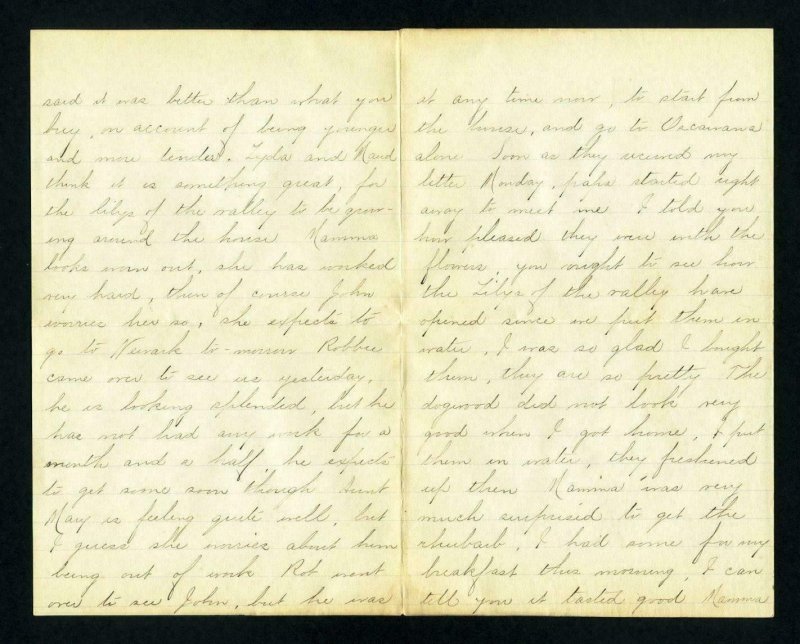 said it was better than what you
buy, on account of being younger
and more tender. Lyda and Maud
think it is something great, for
the lilys of the valley to be grow-
ing around the house Mamma
looks worn out, she has worked
very hard, then of course John
worries her so, she expects to
go to Newark to-morrow Robbie
came over to see us yesterday,
he is looking splended, but he
has not had any work for a
month and a half, he expects
to get some soon though Aunt
Mary is feeling quite well, but
I guess she worries about him
being out of work Rob went
over to see John, but he was
at any time now, to start from
the house, and go to Oscawana
alone Soon as they received my
letter Monday, papa started right
away to meet me I told you
how pleased they were with the
flowers, you ought to see how
the Lilys of the valley have
opened since we put them in
water, I was so glad I bought
them, they are so pretty The
dogwood did not look very
good when I got home, I put
them in water, they freshened
up then Mamma was very
much surprised to get the
rhubarb, I had some for my
breakfast this morning, I can
tell you it tasted good Mamma